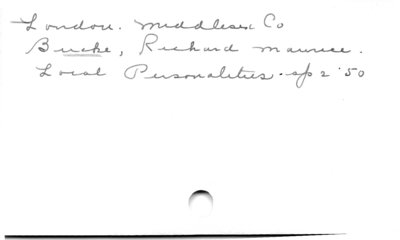 London. Middlesex Co
Bucke, Richard Maurice.
Local Personalities. ap 2 '50